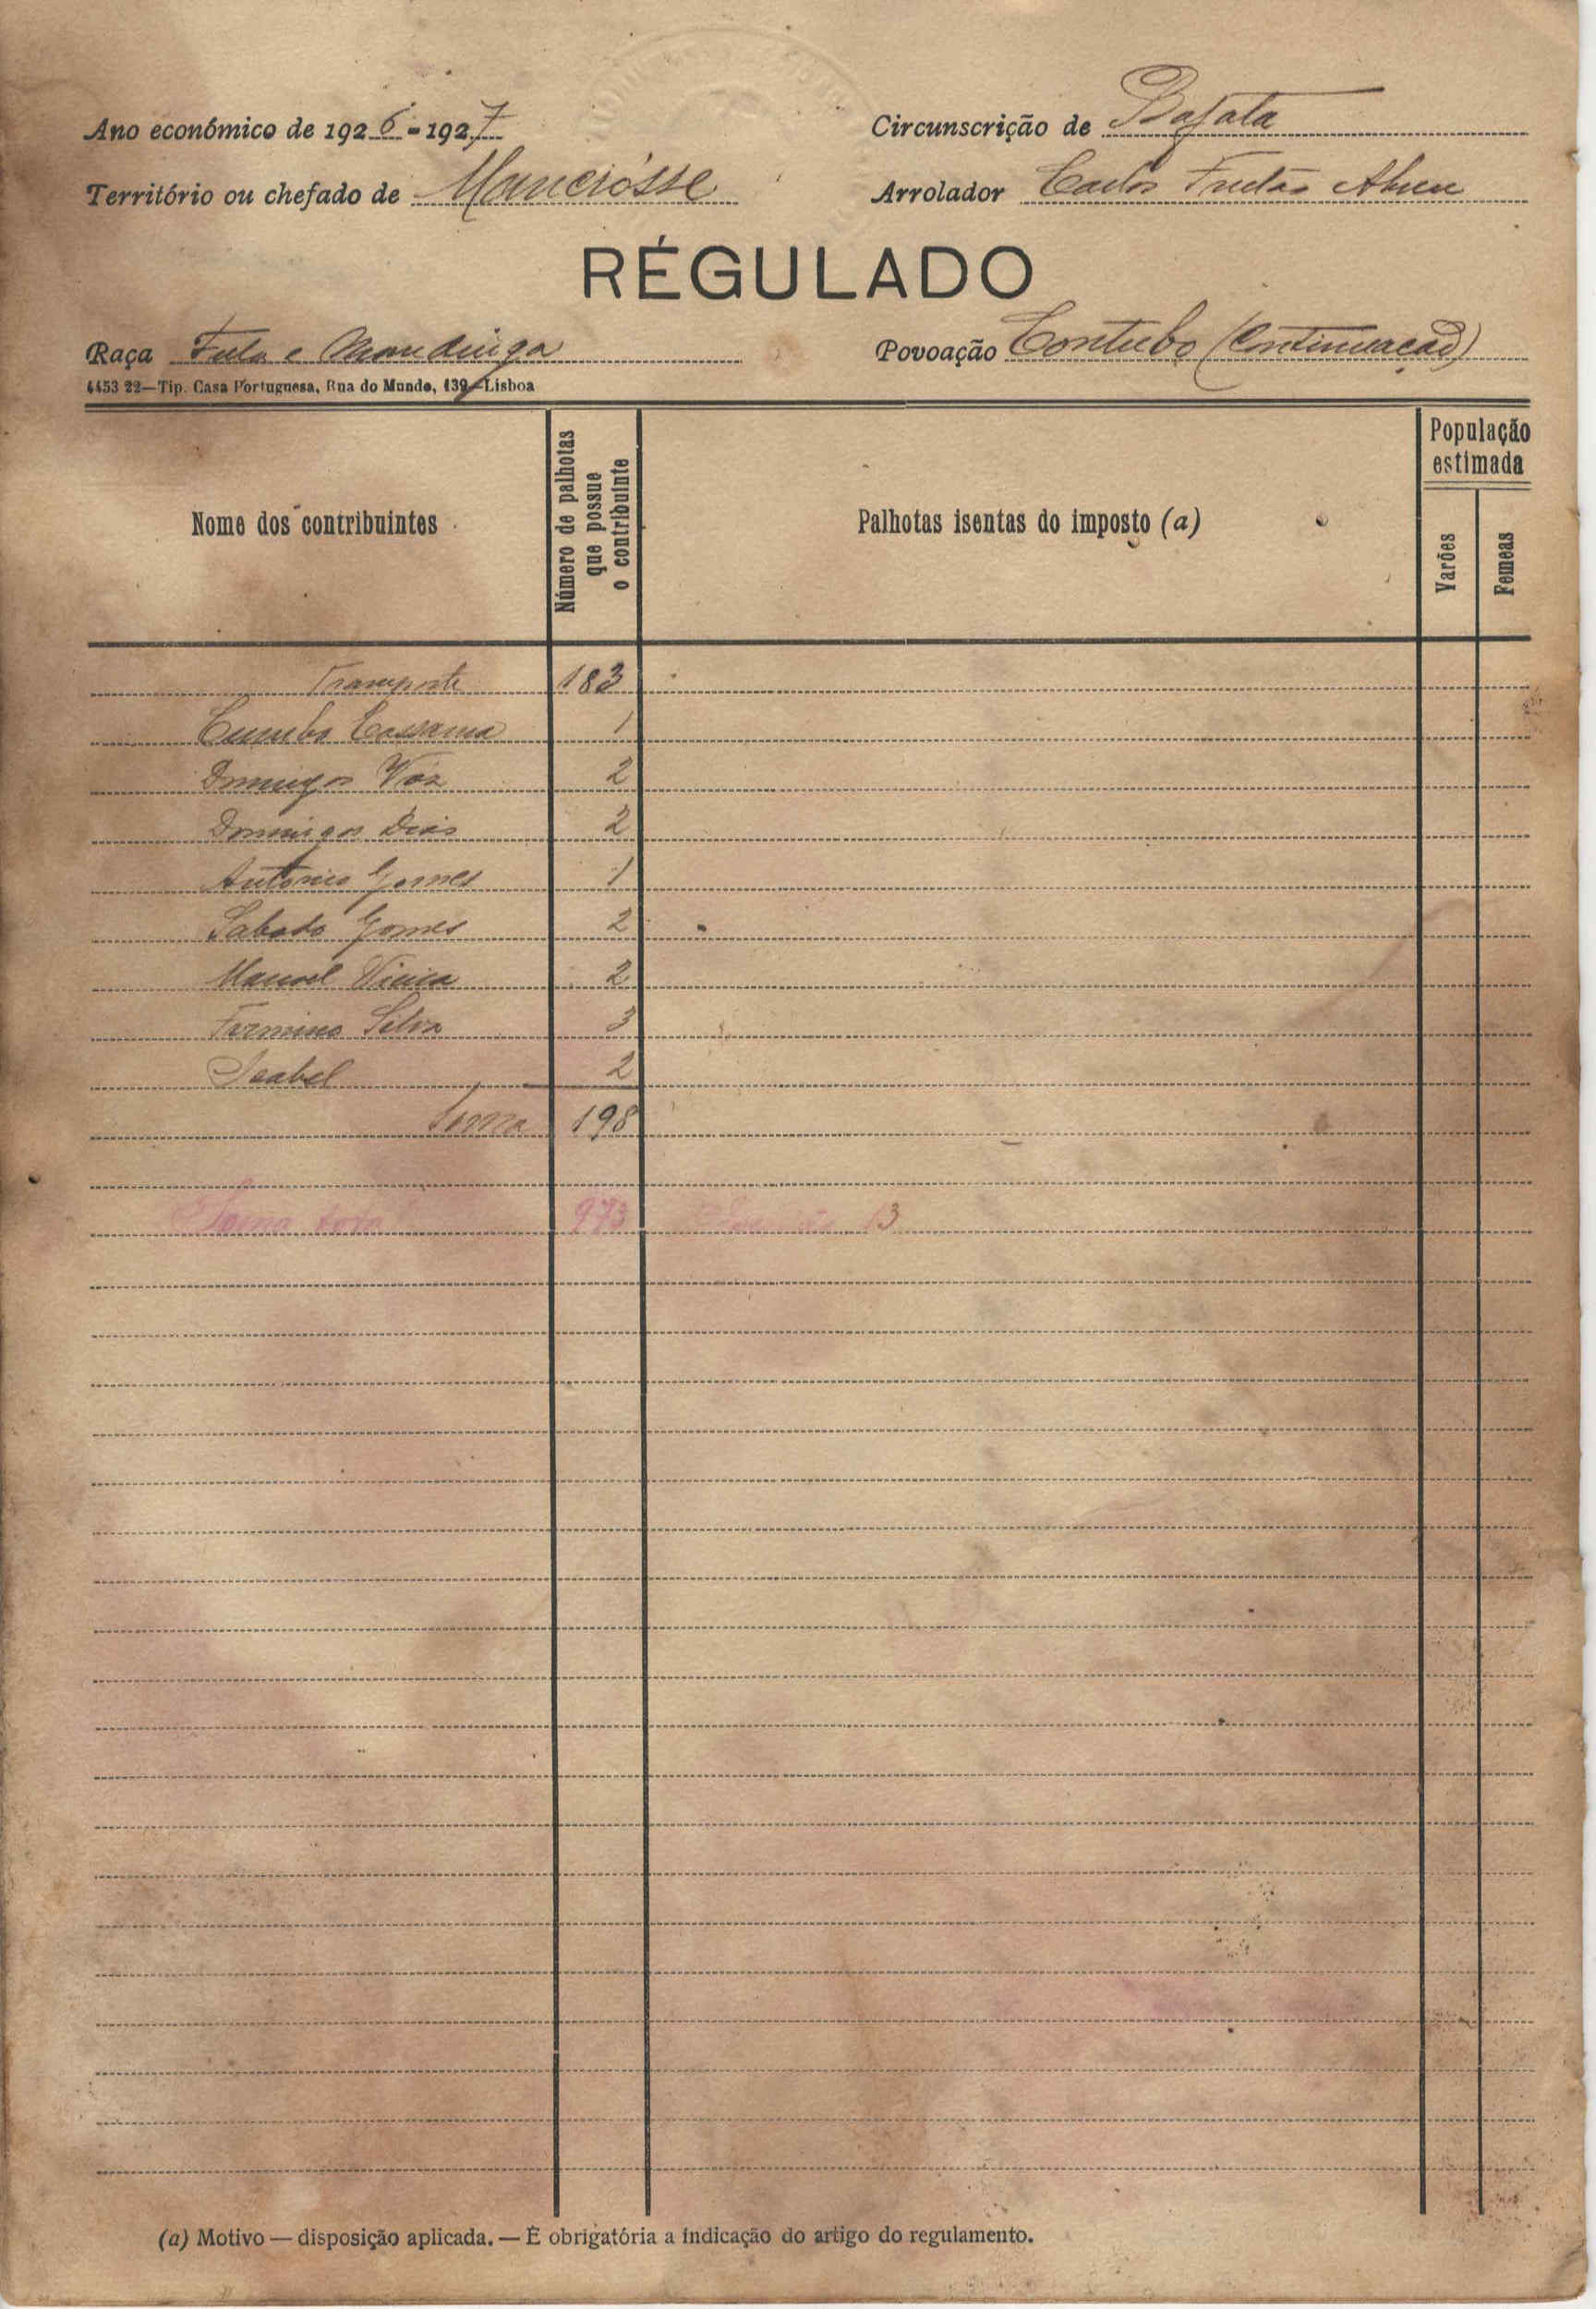 Ano económico de 1926-1927
Circunscrição de Bafata
Território ou chefado de Mancrósse
Arrolador Carlos Freitas Abreu
RÉGULADO
Raça Fula e Mandinga
Povoação Contubo (Continuação)
4453 22—Tip. Casa Portuguesa, Rua do Mundo, 139—Lisboa
Nome dos contribuintes
Número de palhotas que possue o contribuinte
Palhotas isentas do imposto (a)
População estimada
Varões
Femeas
Transporte 183
Cumba Cassama 1
Domingos Vaz 2
Domingos Dias 2
Antonio Gomes 1
Sabado Gomes 2
Manoel Vieira 2
Firmino Silva 3
Isabel 2
Soma 198
Soma total 973 13
(a) Motivo — disposição aplicada. — É obrigatória a indicação do artigo do regulamento.